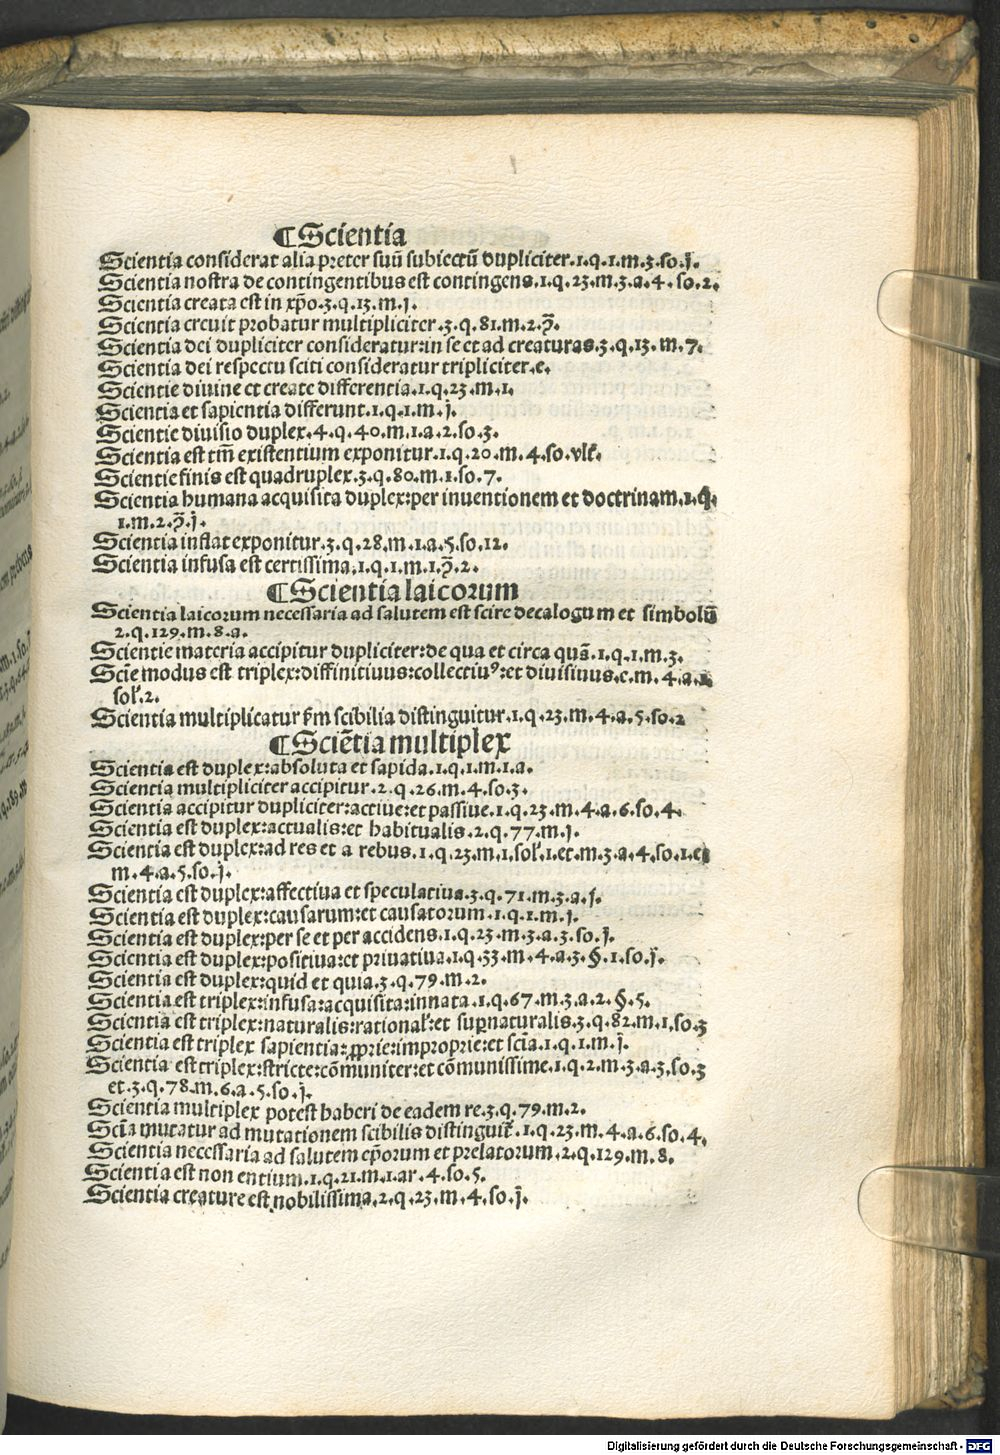 ¶ Scientia
Scientia considerat alia preter suũ subiectũ dupliciter.1.q.1.m.3.so.j̄.
Scientia nostra de contingentibus est contingens.1.q.23.m.3.a.4.so.2.
Scientia creata est in xp̄o.3.q.13.m.j.
Scientia creuit probatur multipliciter.3.q.81.m.2.p̄.
Scientia dei dupliciter consideratur:in se et ad creaturas.3.q.13.m.7.
Scientia dei respectu sciti consideratur tripliciter.e.
Scientie diuine et create differentia.1.q.23.m.1.
Scientia et sapientia differunt.1.q.1.m.j.
Scientie diuisio duplex.4.q.40.m.1.a.2.so.3.
Scientia est tm̄ existentium exponitur.1.q.20.m.4.so.vlt̄.
Scientie finis est quadruplex.3.q.80.m.1.so.7.
Scientia humana acquisita duplex:per inuentionem et doctrinam.1.q.
1.m.2.p̄.j.
Scientia inflat exponitur.3.q.28.m.1.a.5.so.12.
Scientia infusa est certissima.1.q.1.m.1.p̄.2.
¶ Scientia laicorum
Scientia laicorum necessaria ad salutem est scire decalogum et simbolũ
2.q.129.m.8.a.
Scientie materia accipitur dupliciter:de qua et circa quã.1.q.1.m.3.
Sciẽ modus est triplex:diffinitiuus:collectiuꝰ:et diuisiuus.e.m.4.a.1
sol̓.2.
Scientia multiplicatur ẜm scibilia distinguitur.1.q.23.m.4.a.5.so.2
¶ Sciẽtia multiplex
Scientia est duplex:absoluta et sapida.1.q.1.m.1.a.
Scientia multipliciter accipitur.2.q.26.m.4.so.3.
Scientia accipitur dupliciter:actiue:et passiue.1.q.23.m.4.a.6.so.4.
Scientia est duplex:actualis:et habitualis.2.q.77.m.j.
Scientia est duplex:ad res et a rebus.1.q.23.m.1.sol̓.1.et.m.3.a.4.so.1.et
m.4.a.5.so.j̄.
Scientia est duplex:affectiua et speculatiua.3.q.71.m.3.a.j.
Scientia est duplex:causarum:et causatorum.1.q.1.m.j.
Scientia est duplex:per se et per accidens.1.q.23.m.3.a.3.so.j̄.
Scientia est duplex:positiua:et priuatiua.1.q.33.m.4.a.3.§.1.so.j̄.
Scientia est duplex:quid et quia.3.q.79.m.2.
Scientia est triplex:infusa:acquisita:innata.1.q.67.m.3.a.2.§.5.
Scientia est triplex:naturalis:rational̓:et suꝑnaturalis.3.q.82.m.1.so.3
Scientia est triplex sapientia:ꝓprie:improprie:et scĩa.1.q.1.m.j̄.
Scientia est triplex:stricte:cõmuniter:et cõmunissime.1.q.2.m.3.a.3.so.3
et.3.q.78.m.6.a.5.so.j̄.
Scientia multiplex potest haberi de eadem re.3.q.79.m.2.
Scĩa mutatur ad mutationem scibilis distinguit̃.1.q.23.m.4.a.6.so.4.
Scientia necessaria ad salutem ep̄orum et prelatorum.2.q.129.m.8.
Scientia est non entium.1.q.21.m.1.ar.4.so.5.
Scientia creature est nobilissima.2.q.23.m.4.so.j̄.
Digitalisierung gefördert durch die Deutsche Forschungsgemeinschaft - DFG